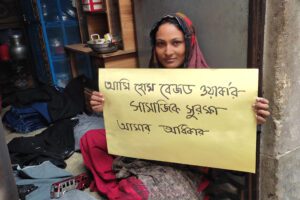 আমি হোম বেজড ওয়ার্কার
সামাজিক সুরক্ষা
আমার অধিকার